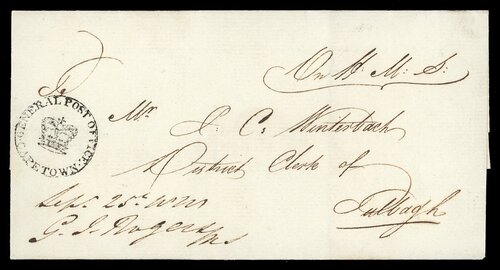 On H: M: S:
To
Mr.
J. C. Winterbach
District Clerk of
Tulbagh
GENERAL POST OFFICE
CAPETOWN
Sept. 25th
G. J. Rogers